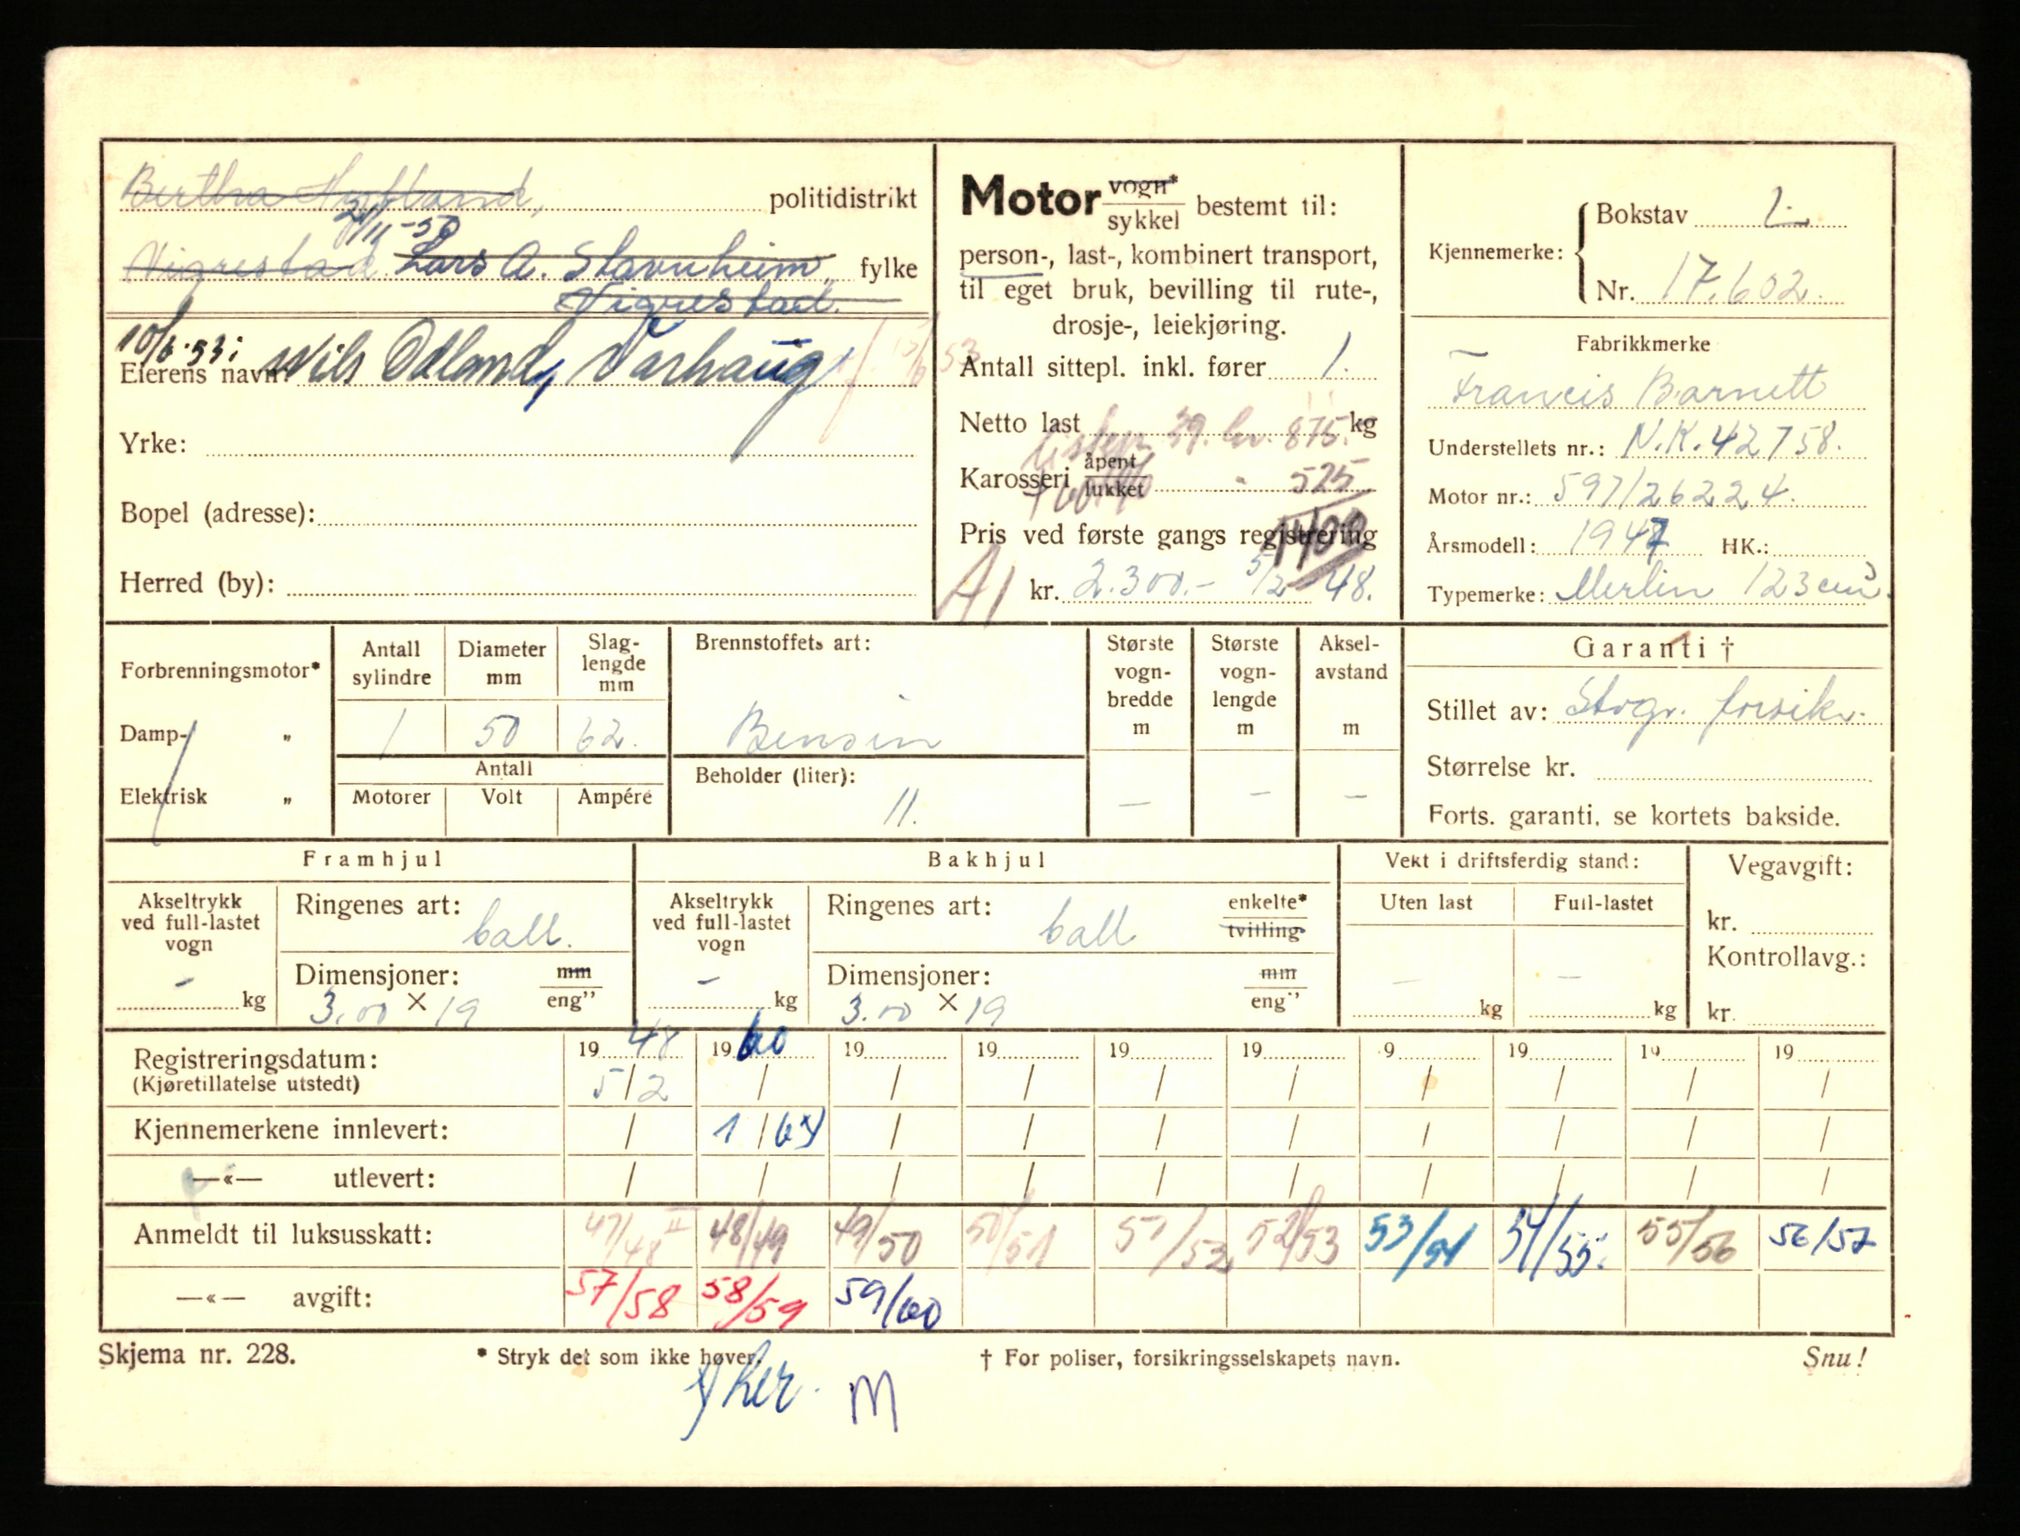 Bertha politidistrikt
21/11-50
Vigrestad Lars A. Stavnheim, fylke
Vigrestad.
10/6-53:
Eierens navn: Nils Odland, Varhaug
Yrke:
Bopel (adresse):
Herred (by):
Motor vogn* / sykkel bestemt til:
person-, last-, kombinert transport,
til eget bruk, bevilling til rute-,
drosje-, leiekjøring.
Antall sittepl. inkl. fører 1.
Netto last 875.- kg
Karosseri åpent / lukket 525
Pris ved første gangs registrering
1400
A1 kr. 2.300.- 5/2 48.
Kjennemerke: Bokstav L
Nr. 17.602.
Fabrikkmerke
Francis Barnett
Understellets nr.: N.K. 42758.
Motor nr.: 597/26224.
Årsmodell: 1947 HK.:
Typemerke: Merlin 123 cm³
Forbrenningsmotor*
Damp- „
Elektrisk „
Antall sylindre
Diameter mm
Slag-lengde mm
1 50 62.
Antall
Motorer Volt Ampére
Brennstoffets art:
Bensin
Beholder (liter):
11.
Største vogn-bredde m
Største vogn-lengde m
Aksel-avstand m
— — —
Garanti †
Stillet av: Stvgr. forsikr.
Størrelse kr.
Forts. garanti, se kortets bakside.
Framhjul
Akseltrykk ved full-lastet vogn
- kg
Ringenes art: ball.
Dimensjoner: mm / eng"
3.00 × 19
Bakhjul
Akseltrykk ved full-lastet vogn
- kg
Ringenes art: ball enkelte* / tvilling
Dimensjoner: mm / eng"
3.00 × 19
Vekt i driftsferdig stand:
Uten last Full-lastet
— —
kg kg
Vegavgift:
kr.
Kontrollavg.:
kr.
Registreringsdatum: 1948 1960 19 19 19 19 19 19 19 19
(Kjøretillatelse utstedt) 5/2 / / / / / / / / /
Kjennemerkene innlevert: / / / / / / / / /
—«— utlevert: / / / / / / / / / /
Anmeldt til luksusskatt: 47/48 II 48/49 49/50 50/51 51/52 52/53 53/54 54/55. 55/56 56/57
—«— avgift: 57/58 58/59 59/60
Skjema nr. 228.
* Stryk det som ikke høver.
† For poliser, forsikringsselskapets navn.
Snu!
M